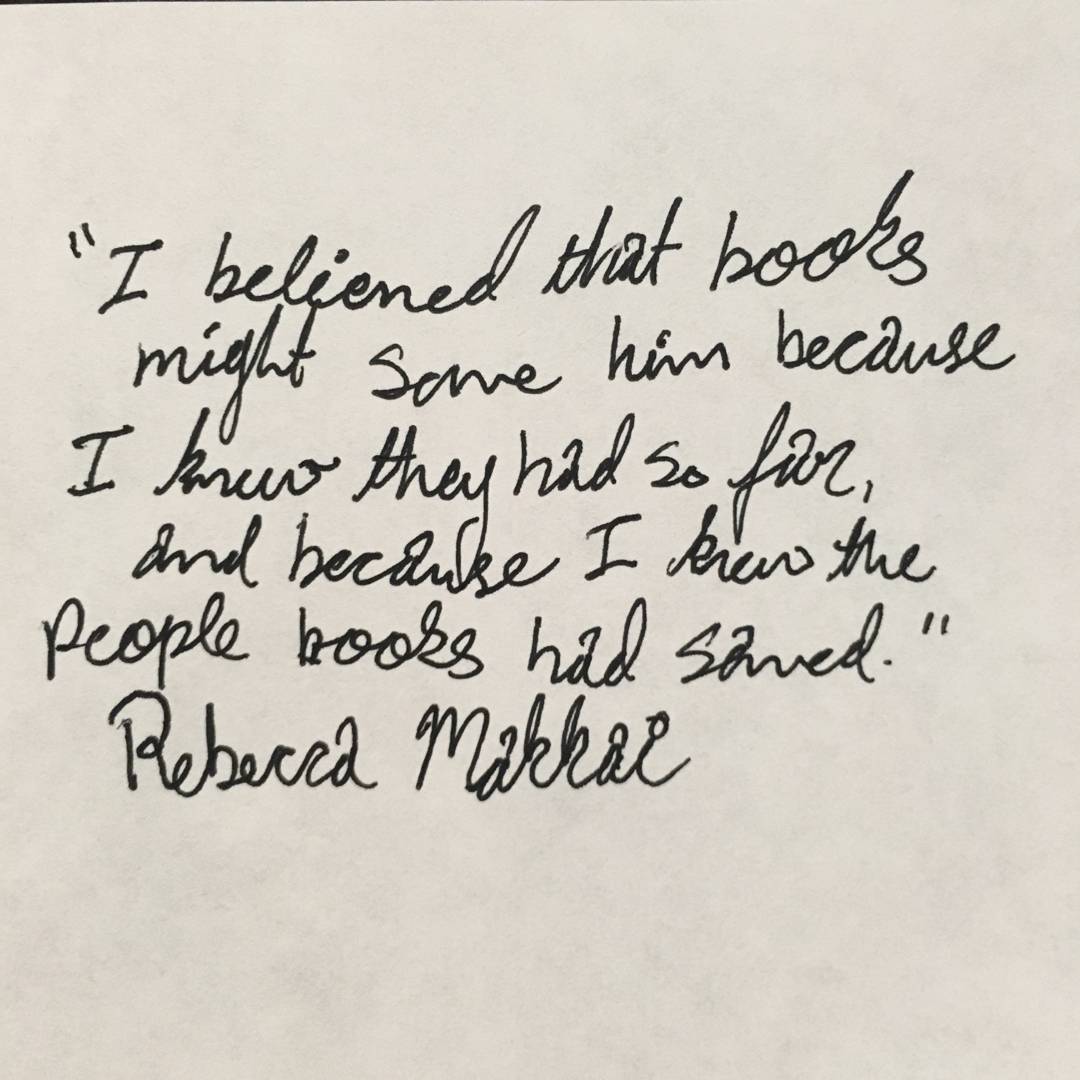 "I believed that books
might save him because
I knew they had so far,
and because I knew the
people books had saved."
Rebecca Makkai